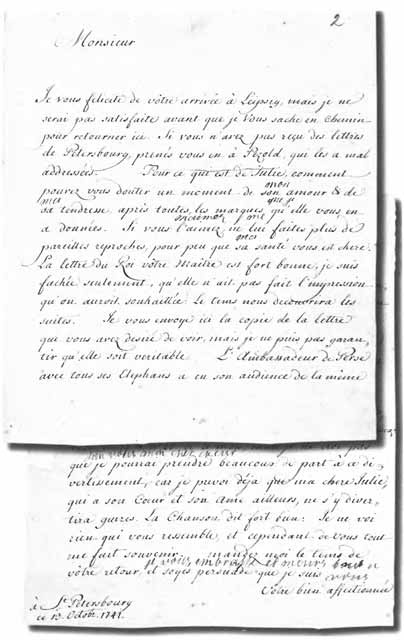 2
Monsieur
Je vous felicite de vôtre arrivée à Leipzig, mais je ne
serai pas satisfaite avant que je Vous sache en chemin
pour retourner ici. Si vous n'avez pas reçu des lettres
de Petersbourg, prenés vous en à Pezold, qui les a mal
addressées. Pour ce que est de Julie, comment
mon
pouvez vous douter un moment de son amour & de
ma que je
sa tendresse, après toutes les marques qu'elle vous en
a données. Si vous l'aimez ne lui faites plus de
ma
pareilles reproches, pour peu que sa santé vous est chere.
La lettre du Roi vôtre Maitre est fort bonne, je suis
fachée seulement, qu'elle n'ait pas fait l'impression
qu'on auroit souhaitée. Le tems nous decouvrira les
suites. Je vous envoye ici la copie de la lettre
que vous avez desiré de voir, mais je ne puis pas garan-
tir qu'elle soit veritable. L'Ambassadeur de Perse
avec tous ses Elephans a eu son audience de la même
que je pourrai prendre beaucoup de part a ce di-
vertissement, car je prevoi déja que ma chere Julie,
qui a son Cœur et son Ame ailleurs, ne s'y diver-
tira gueres. La Chanson dit fort bien: Je ne voi
rien qui vous ressemble, et cependant de vous tout
me fait souvenir. mandez moi le tems de
je vous embrasse et meurs tout a
vôtre retour, et soyes persuadé que je suis
vous
Votre bien affectionnée
à St Petersbourg
ce 13. Octobr. 1741.